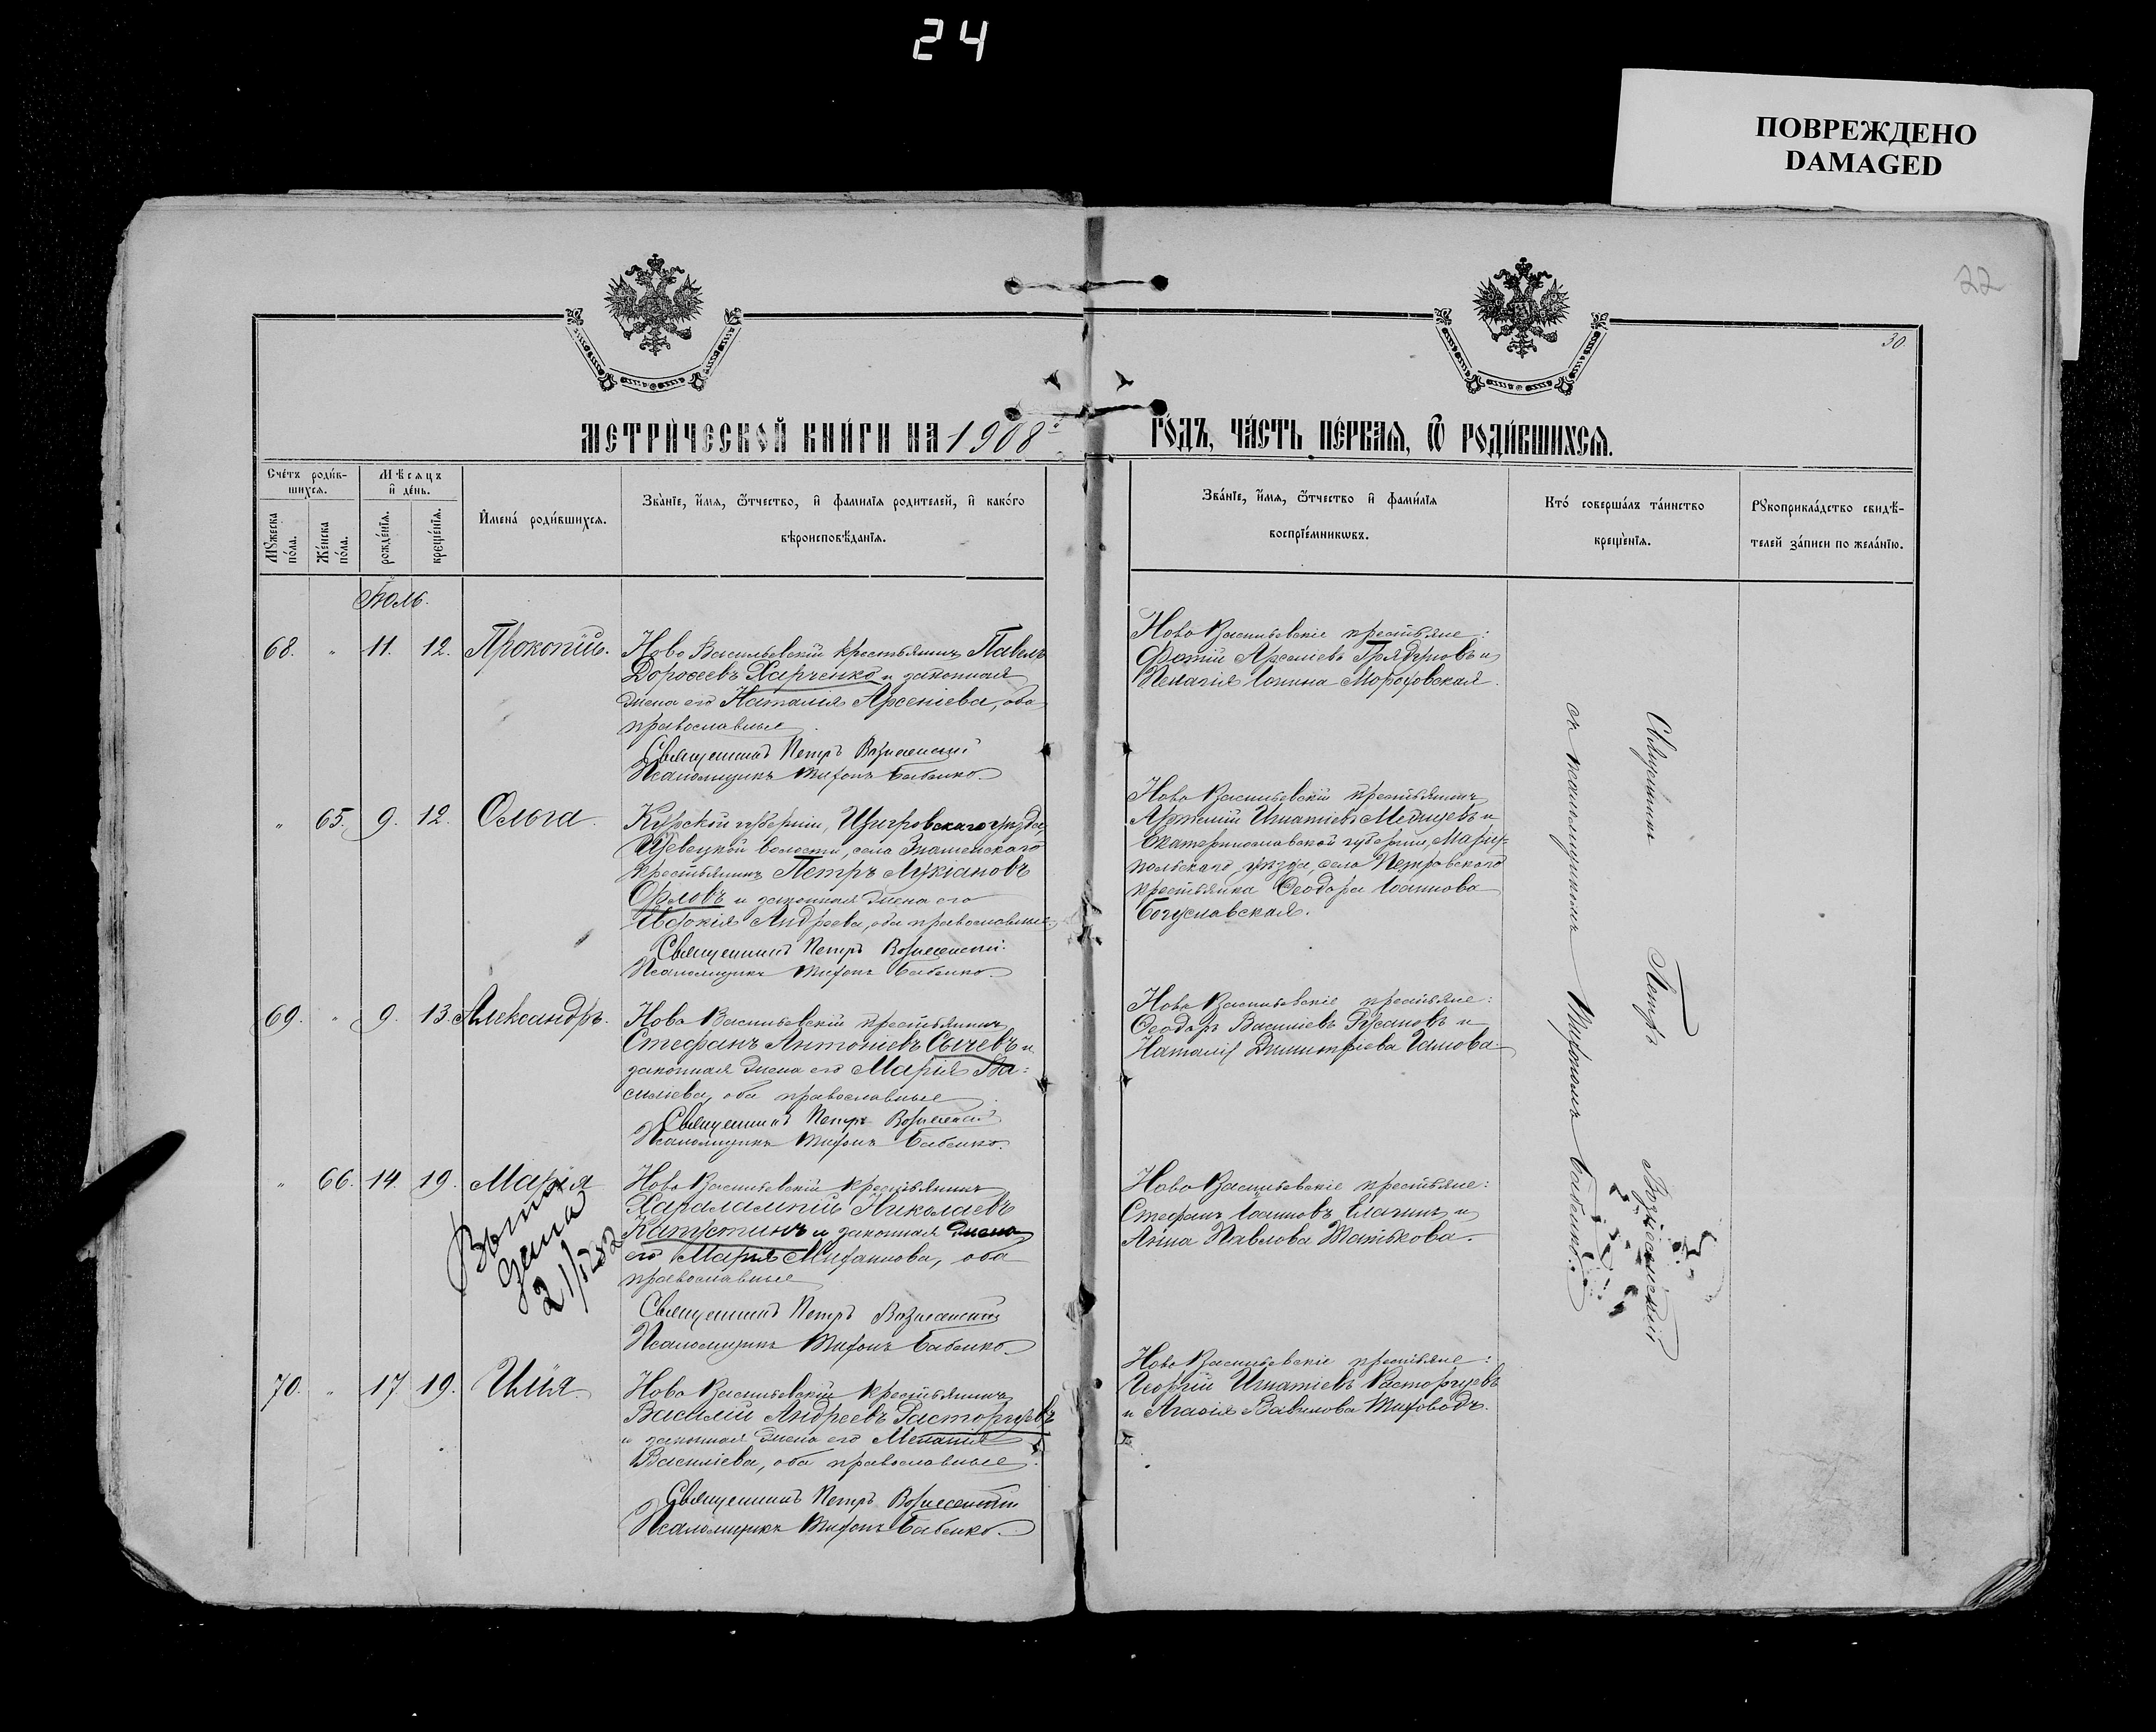 24
ПОВРЕЖДЕНО
DAMAGED
22
30.
МЕТРИ́ЧЕСКОЙ КНИ́ГИ НА 1908й
ГО́ДЪ, ЧА́СТЬ ПЕ́РВАѦ, Ѽ РОДИ́ВШИХСѦ.
Сче́тъ роди́в-
шихсѧ.
Мѣсѧцъ
и҆ де́нь.
Мꙋжеска
по́ла.
Же́нска
по́ла.
рожде́нїѧ.
креще́нїѧ.
И҆мена̀ роди́вшихсѧ.
Зва́нїе, и҆́мѧ, ѻ҆́тчество, и҆ фамилїѧ родителей, и҆ како́гѡ
вѣроисповѣ́данїѧ.
Зва́нїе, и҆́мѧ, ѻ҆́тчество и҆ фами́лїѧ
воспрїе́мникѡвъ.
Кто̀ соверша́лъ та́инство
креще́нїѧ.
Рꙋкоприкла́дство свидѣ́-
телей за́писи по жела́нїю.
Іюль.
68. " 11. 12. Прокопій.
Ново Васильевскій крестьянинъ Павелъ
Дороѳеевъ Харченко и законная
жена его Наталія Арсеніева, оба
православные
Священникъ Петръ Вознесенскій
Псаломщикъ Тифонъ Бабенко.
Ново Васильевскіе крестьяне:
Фотій Арсеніевъ и
Пелагія Іонина Морозовская.
" 65. 9. 12. Ольга.
Курской губерніи, Щигровскаго уѣзда,
волости, села Знаменскаго
крестьянинъ Петръ Лукіановъ
Орловъ и законная жена его
Евдокія Андреева, оба православные.
Священникъ Петръ Вознесенскій
Псаломщикъ Тифонъ Бабенко.
Ново Васильевскій крестьянинъ
Игнатіевъ и
Екатеринославской губерніи, Маріу-
польскаго уѣзда, села Петровскаго
крестьянка Ѳеодора Іоаннова
Богуславская.
69. " 9. 13. Александръ.
Ново Васильевскій крестьянинъ
Стефанъ Антоніевъ Сычевъ и
законная жена его Марія Ва-
силіева, оба православные
Священникъ Петръ Вознесенскій
Псаломщикъ Тифонъ Бабенко.
Ново Васильевскіе крестьяне:
Ѳеодоръ Василіевъ Русановъ и
Наталія Димитріева
" 66. 14. 19. Марія
21/
Ново Васильевскій крестьянинъ
Харалампій Николаевъ
Капустинъ и законная жена
его Марія оба
православные
Священникъ Петръ Вознесенскій
Псаломщикъ Тифонъ Бабенко.
Ново Васильевскіе крестьяне:
Стефанъ Іоанновъ и
Анна Павлова
70. " 17 19. Илія.
Ново Васильевскій крестьянинъ
Василій Андреевъ Расторгуевъ
и законная жена его Меланія
Василіева, оба православные.
Священникъ Петръ Вознесенскій
Псаломщикъ Тифонъ Бабенко.
Ново Васильевскіе крестьяне:
Георгій Игнатіевъ Расторгуевъ
и Агаѳія Вавилова
Священникъ Петръ Вознесенскій
съ псаломщикомъ Тифономъ Бабенко.